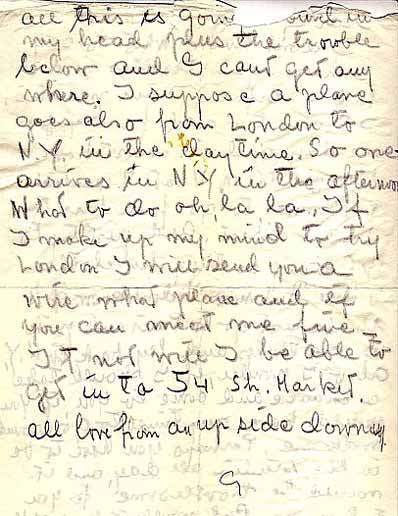 all this is going round in
my head plus the trouble
below and I cant get any
where. I suppose a plane
goes also from London to
N.Y. in the daytime. So one
arrives in N.Y. in the afternoon
What to do oh, la la. If
I make up my mind to try
London I will send you a
wire what plane and if
you can meet me fine
If not will I be able to
get in to 54 Sh. Market.
all love from an up side down
G